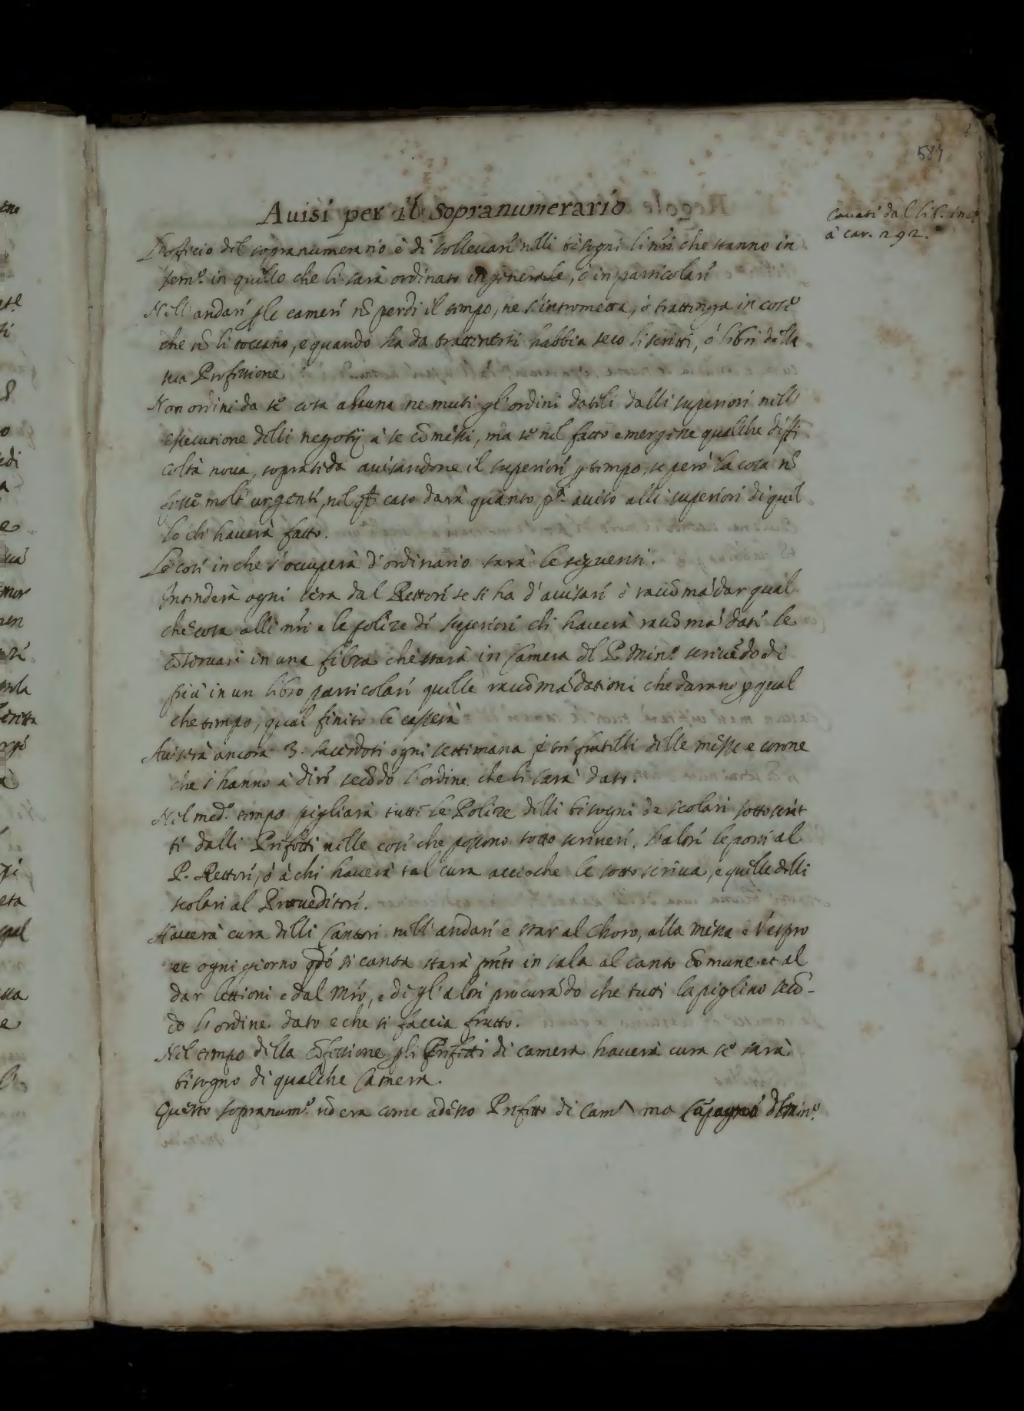 584
Auisi per il sopranumerario
Cauati dal lib.
à car. 292.
L'officio del sopranumerario è di solleuare nelli bisogni li nrī che stanno in
sem.º in quello che li sarà ordinato in generale, ò in particolare
Nell'andare ple camere nō perdi il tempo, ne s'intrometta, ò trattenga in cose
che nō li toccano, e quando ha da trattenersi habbia seco li scritti, ò libri della
sua Professione
Non ordini da sè cosa alcuna ne muti gl'ordini datili dalli superiori nell'
essecutione delli negotij à se cōmessi, ma se nel fatto emergesse qualche diffi
coltà noua, soprasieda auisandone il superiore p tempo, se però la cosa nō
fosse molto urgente, nel qł caso darà quanto pª auiso alli superiori di quel
lo ch hauerà fatto.
Le cose in che s'occuperà d'ordinario sarà le seguenti.
Intenderà ogni sera dal Rettore se si ha d'auisare ò raccōmādar qual
che cosa alli nrī e le polize di superiori ch hauerà raccōmādati le
cōseruarà in una filza che starà in Camera dl P. Min.º scriuēdo di
più in un libro particolare quelle raccōmādationi che darano p qual
che tempo, qual finito le casserà
Auiserà ancora 3. sacerdoti ogni settimana e tre fratelli delle messe e corone
che s'hanno à dire secōdo l'ordine che li sarà dato.
Nel med.º tempo pigliarà tutte le Polize delli bisogni de scolari sottoscrit
te dalli Prefetti nelle cose che possono sotto scriuere, le altre le porti al
P. Rettore, ò à chi hauerà tal cura accioche le sottoscriua, e quelle delli
scolari al Proueditore.
Hauerà cura delli Cantori nell'andare e star al Choro, alla messa e Vespro
et ogni giorno qdō si canta starà pnte in sala al canto Cōmune et al
dar lettioni e dal Mrō, e di gl'altri procurādo che tutti la piglino secō-
do l'ordine dato e che si faccia frutto.
Nel tempo della Cōfessione gli Prefetti di camera hauerà cura se sarà
bisogno di qualche Camera.
Questo sopranum.º nō era come adesso Prefetto di Cam.ª ma Cōpagno dl Min.º